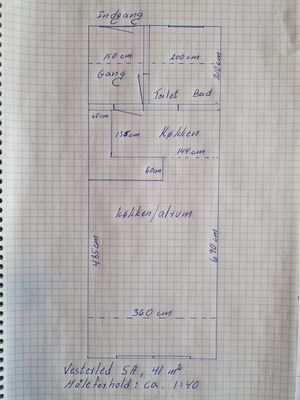 Indgang
150 cm
200 cm
210 cm
Gang
Toilet Bad
60 cm
135 cm
Køkken
144 cm
60cm
køkken/alrum
485cm
690 cm
360 cm
Vesterled 5A, 41 m²
Måleforhold: ca. 1:40